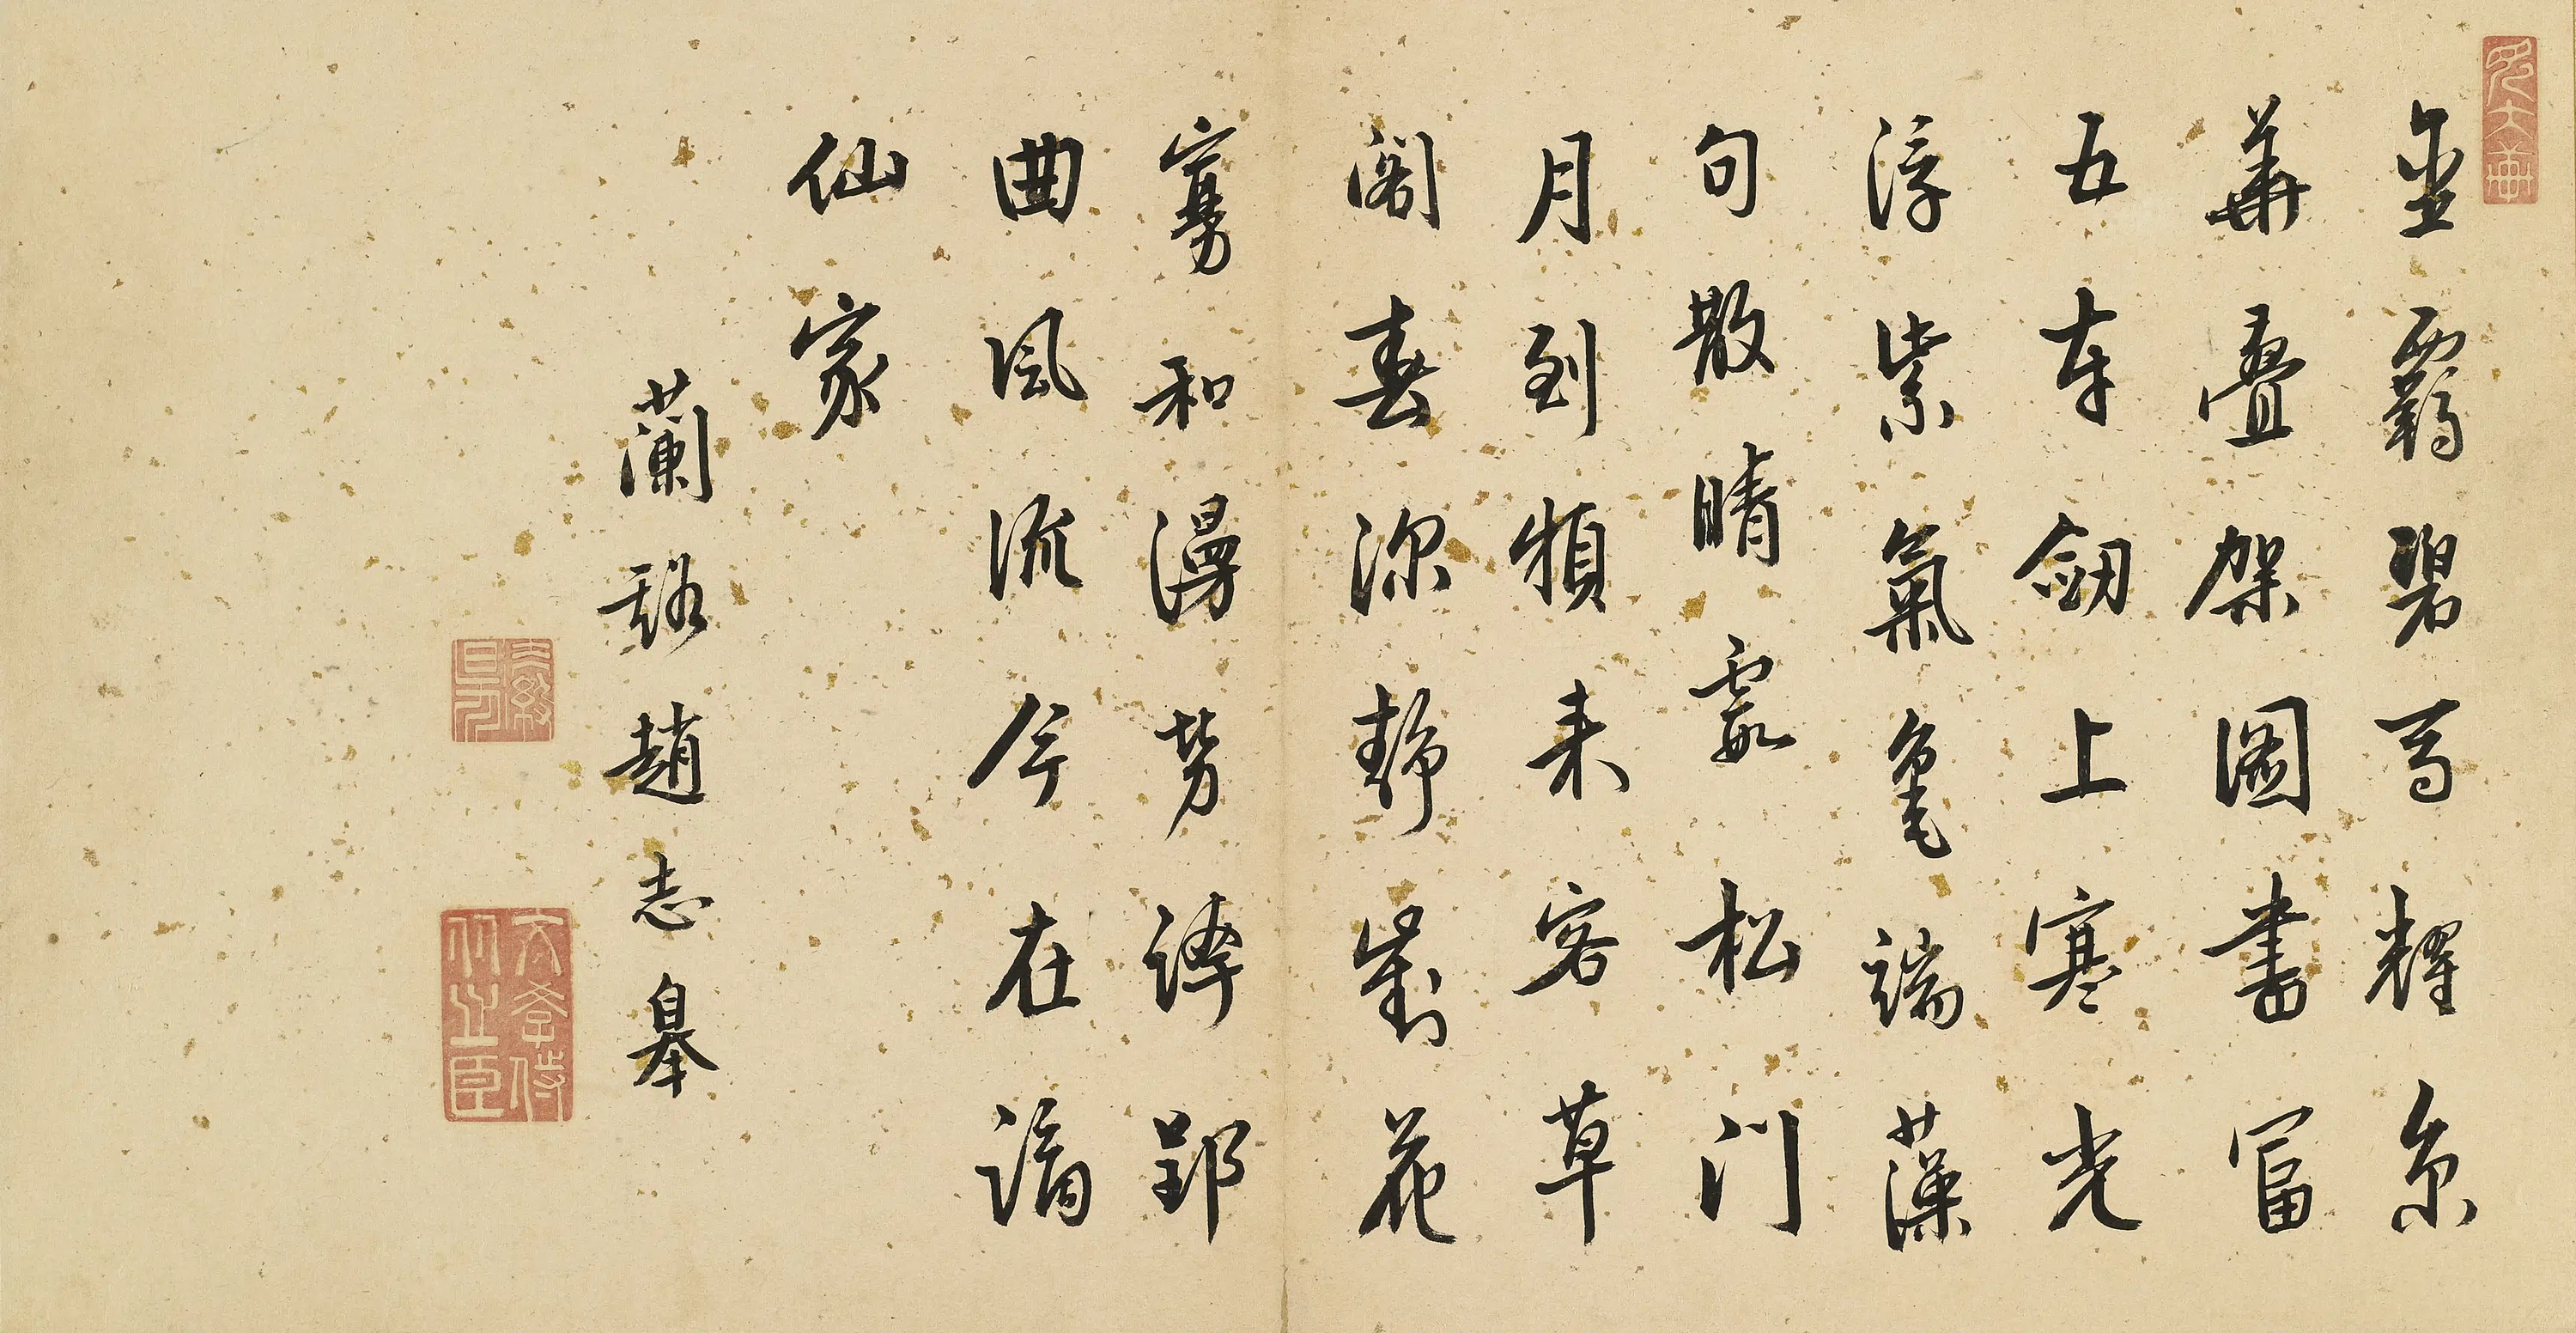 金羈碧馬耀京
華疊架圖書富
五車劒上寒光
浮紫氣毫端藻
句散晴霞松門
月到頻來客草
閣春深靜對花
寡和漫勞誇郢
曲風流今在謫
仙家
蘭谿趙志皋